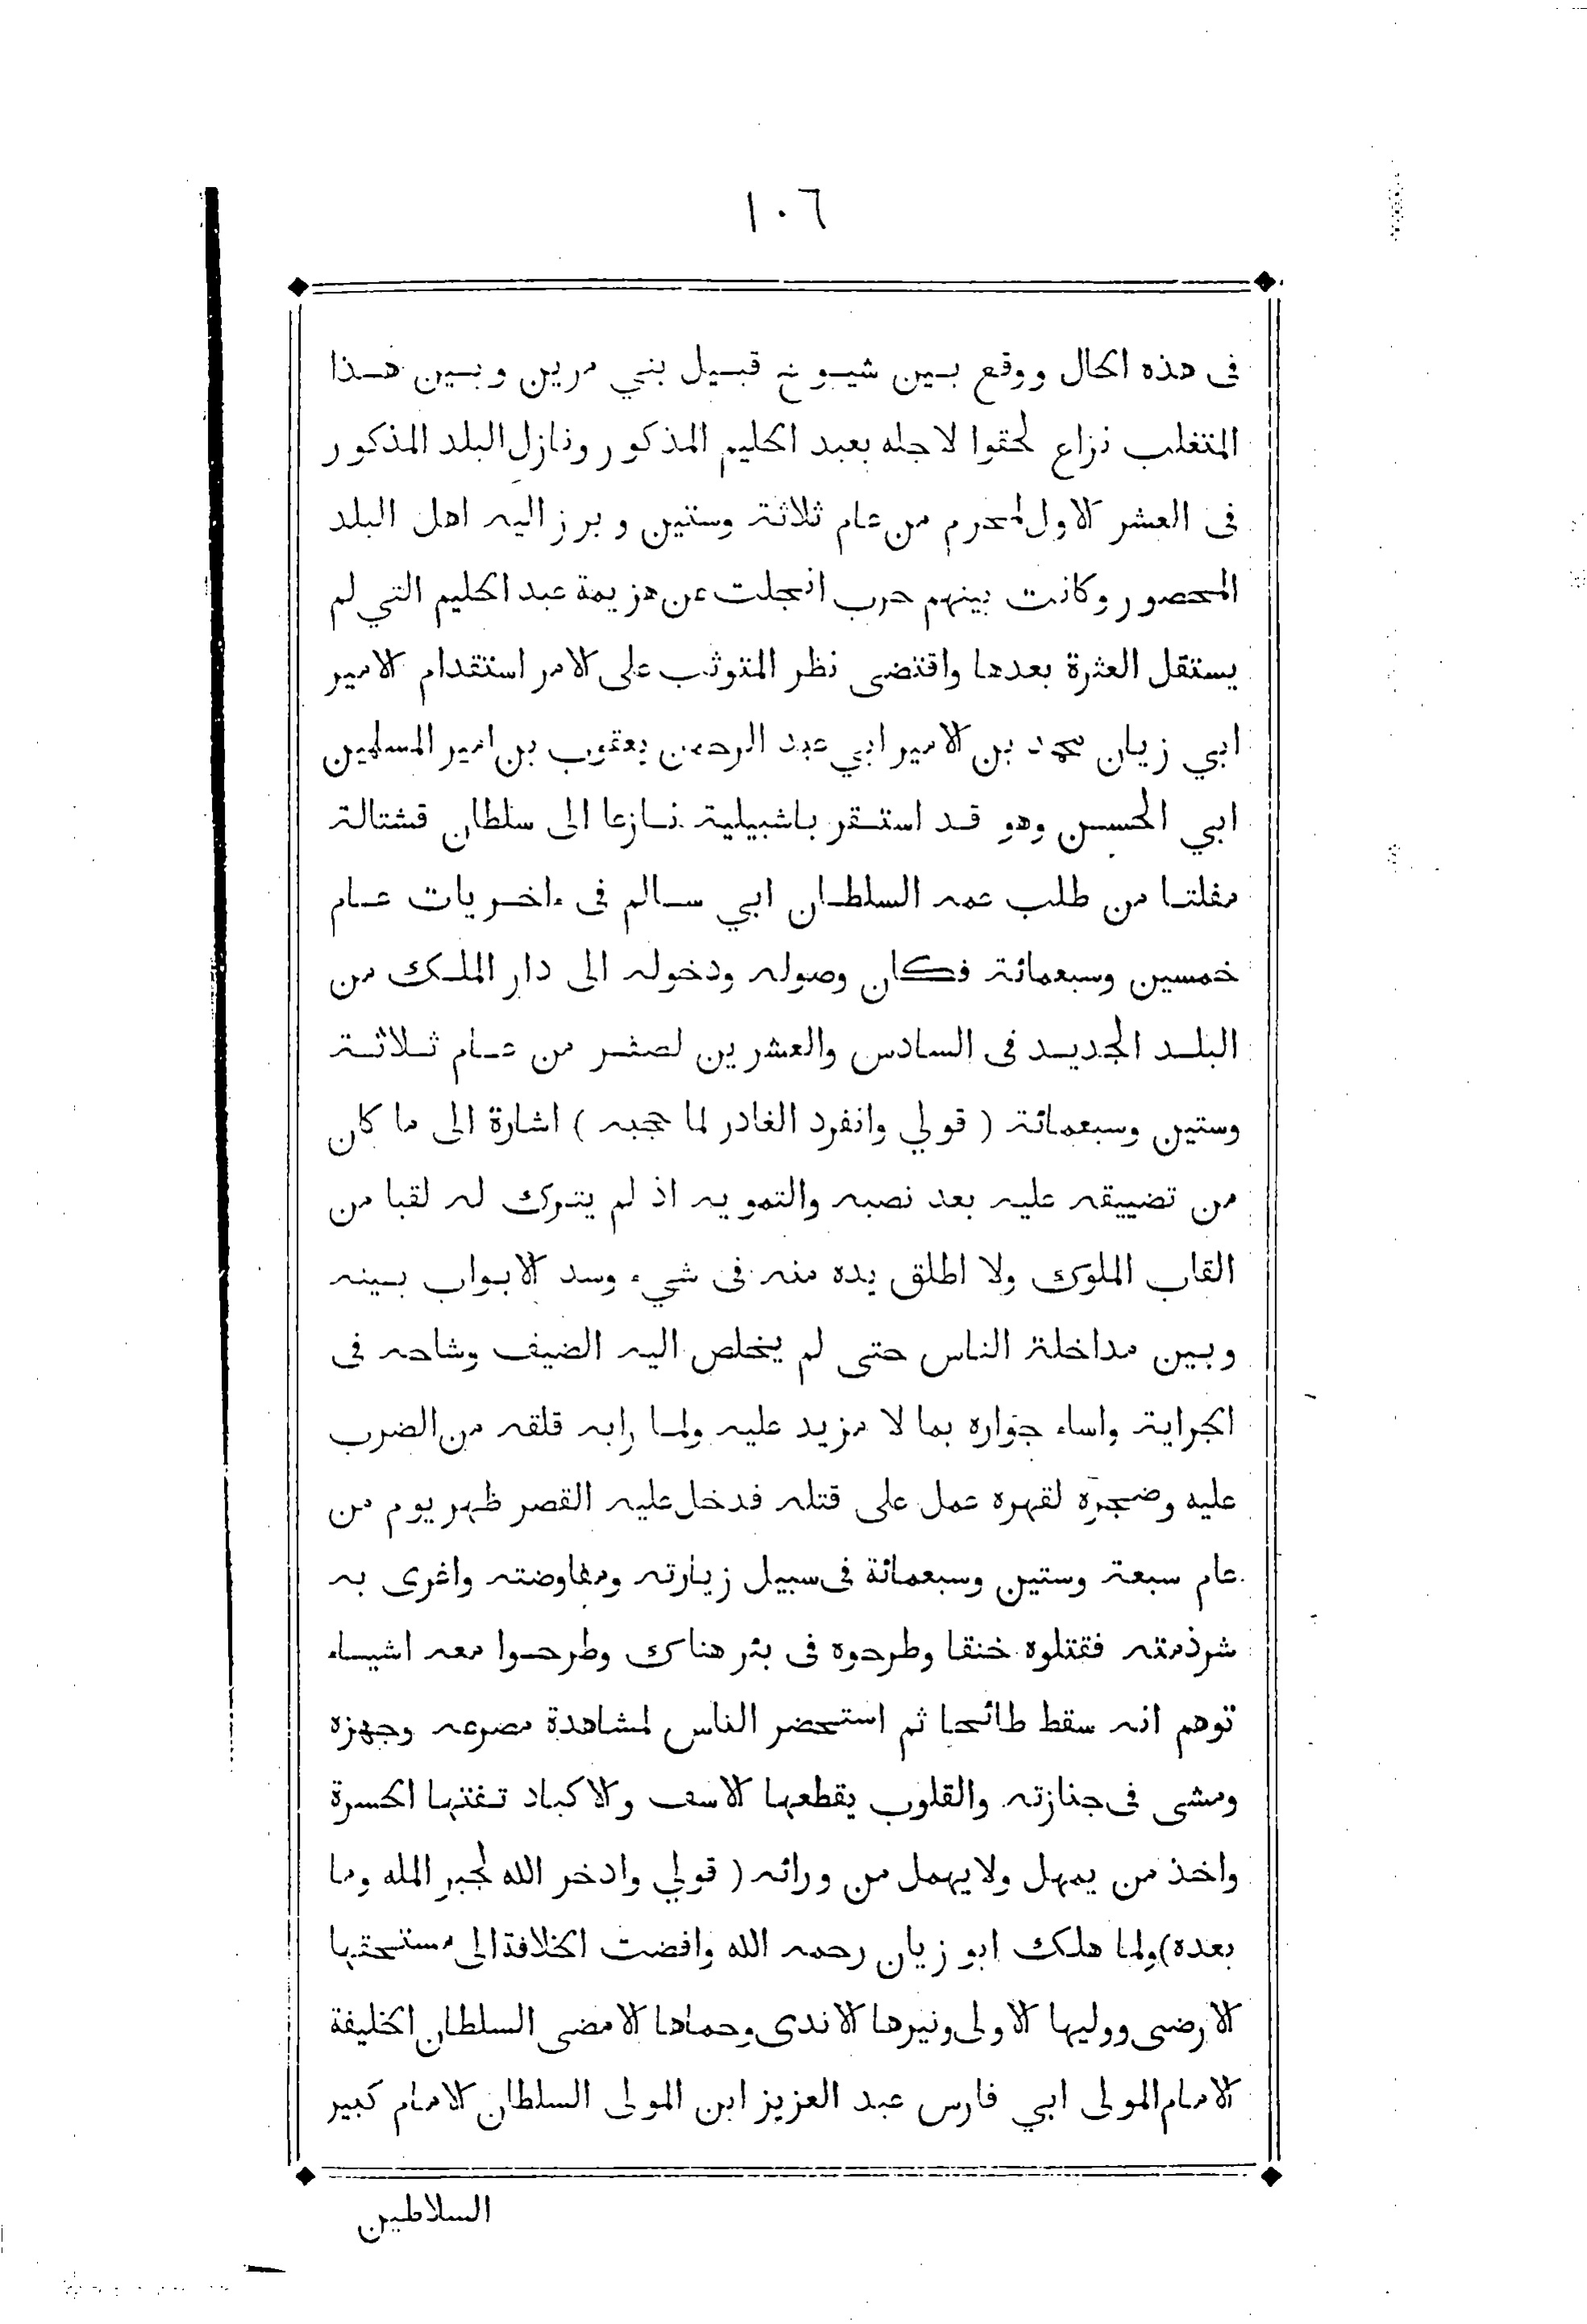 ١٠٦
فى هذه الحال ووقع بين شيوخ قبيل بني مرين وبين هذا
المتغلب نزاع لحقوا لاجله بعبد الحليم المذكور ونازل البلد المذكور
فى العشر الاول لمحرم من عام ثلاثة وستين وبرز اليه اهل البلد
المحصور وكانت بينهم حرب انجلت عن هزيمة عبد الحليم التي لم
يستقل العثرة بعدها واقتضى نظر المتوثب على الامر استقدام الامير
ابي زيان محمد بن الامير ابي عبد الرحمن يعقوب بن امير المسلمين
ابي الحسن وهو قد استقر باشبيلية نازعا الى سلطان قشتالة
مفلتا من طلب عمه السلطان ابي سالم فى ءاخريات عام
خمسين وسبعمائة فكان وصوله ودخوله الى دار الملك من
البلد الجديد فى السادس والعشرين لصفر من عام ثلاثة
وستين وسبعمائة ( قولي وانفرد الغادر لما حجبه ) اشارة الى ما كان
من تضييقه عليه بعد نصبه والتمويه اذ لم يترك له لقبا من
القاب الملوك ولا اطلق يده منه فى شيء وسد الابواب بينه
وبين مداخلة الناس حتى لم يخلص اليه الضيف وشاحه فى
الجراية واساء جواره بما لا مزيد عليه ولما رابه قلقه من الضرب
عليه وضجره لقهره عمل على قتله فدخل عليه القصر ظهر يوم من
عام سبعة وستين وسبعمائة فى سبيل زيارته ومفاوضته واغرى به
شرذمته فقتلوه خنقا وطرحوه فى بئر هناك وطرحوا معه اشياء
توهم انه سقط طائحا ثم استحضر الناس لمشاهدة مصرعه وجهزه
ومشى فى جنازته والقلوب يقطعها الاسف والاكباد تفتتها الحسرة
واخذ من يمهل ولا يهمل من ورائه ( قولي وادخر الله لجبر المله وما
بعده) ولما هلك ابو زيان رحمه الله وافضت الخلافة الى مستحقها
الارضى ووليها الاولى ونيرها الاندى وحماها الامضى السلطان الخليفة
الامام المولى ابي فارس عبد العزيز ابن المولى السلطان الامام كبير
السلاطين